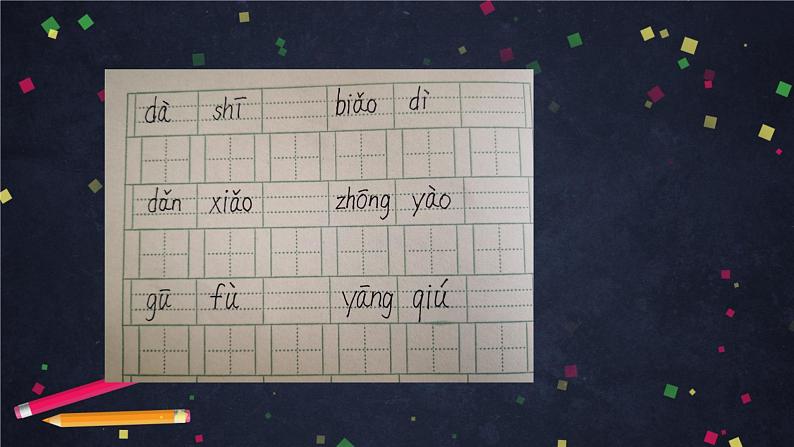 dà shī biǎo dì
dǎn xiǎo zhōng yào
gū fù yāng qiú